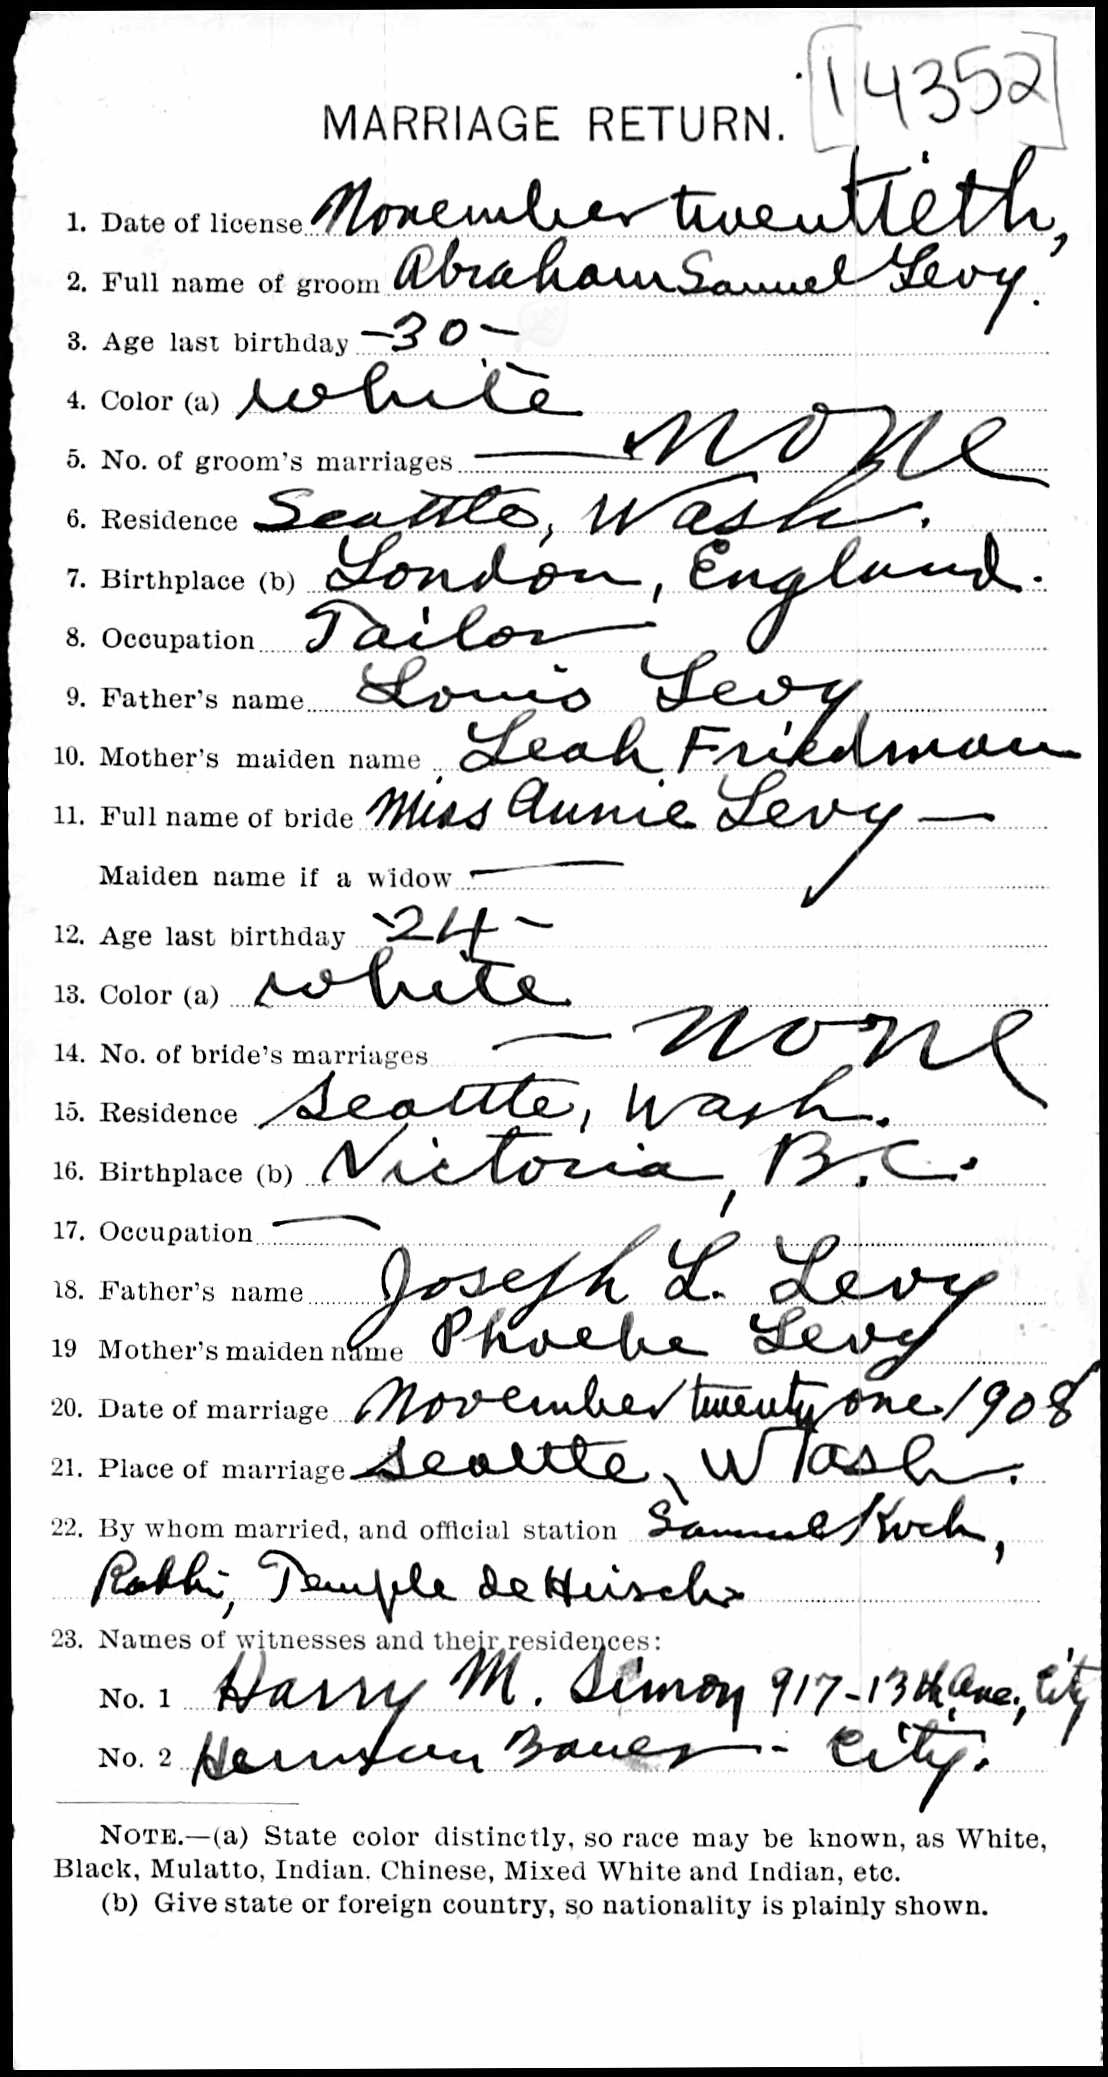 14352
MARRIAGE RETURN.
1. Date of license November twentieth,
2. Full name of groom Abraham Samuel Levy.
3. Age last birthday -30-
4. Color (a) white
5. No. of groom's marriages — none
6. Residence Seattle, Wash.
7. Birthplace (b) London, England.
8. Occupation Tailor
9. Father's name Louis Levy
10. Mother's maiden name Leah Friedman
11. Full name of bride Miss Annie Levy —
Maiden name if a widow —
12. Age last birthday -24-
13. Color (a) white
14. No. of bride's marriages — none
15. Residence Seattle, Wash.
16. Birthplace (b) Victoria, B.C.
17. Occupation —
18. Father's name Joseph L. Levy
19 Mother's maiden name Phoebe Levy
20. Date of marriage November twenty one 1908
21. Place of marriage Seattle, Wash.
22. By whom married, and official station Samuel Koch,
Rabbi, Temple de Hirsch
23. Names of witnesses and their residences:
No. 1 Harry M. Simon 917-13th Ave., City
No. 2 Herman Bauer - City.
NOTE.—(a) State color distinctly, so race may be known, as White,
Black, Mulatto, Indian. Chinese, Mixed White and Indian, etc.
(b) Give state or foreign country, so nationality is plainly shown.